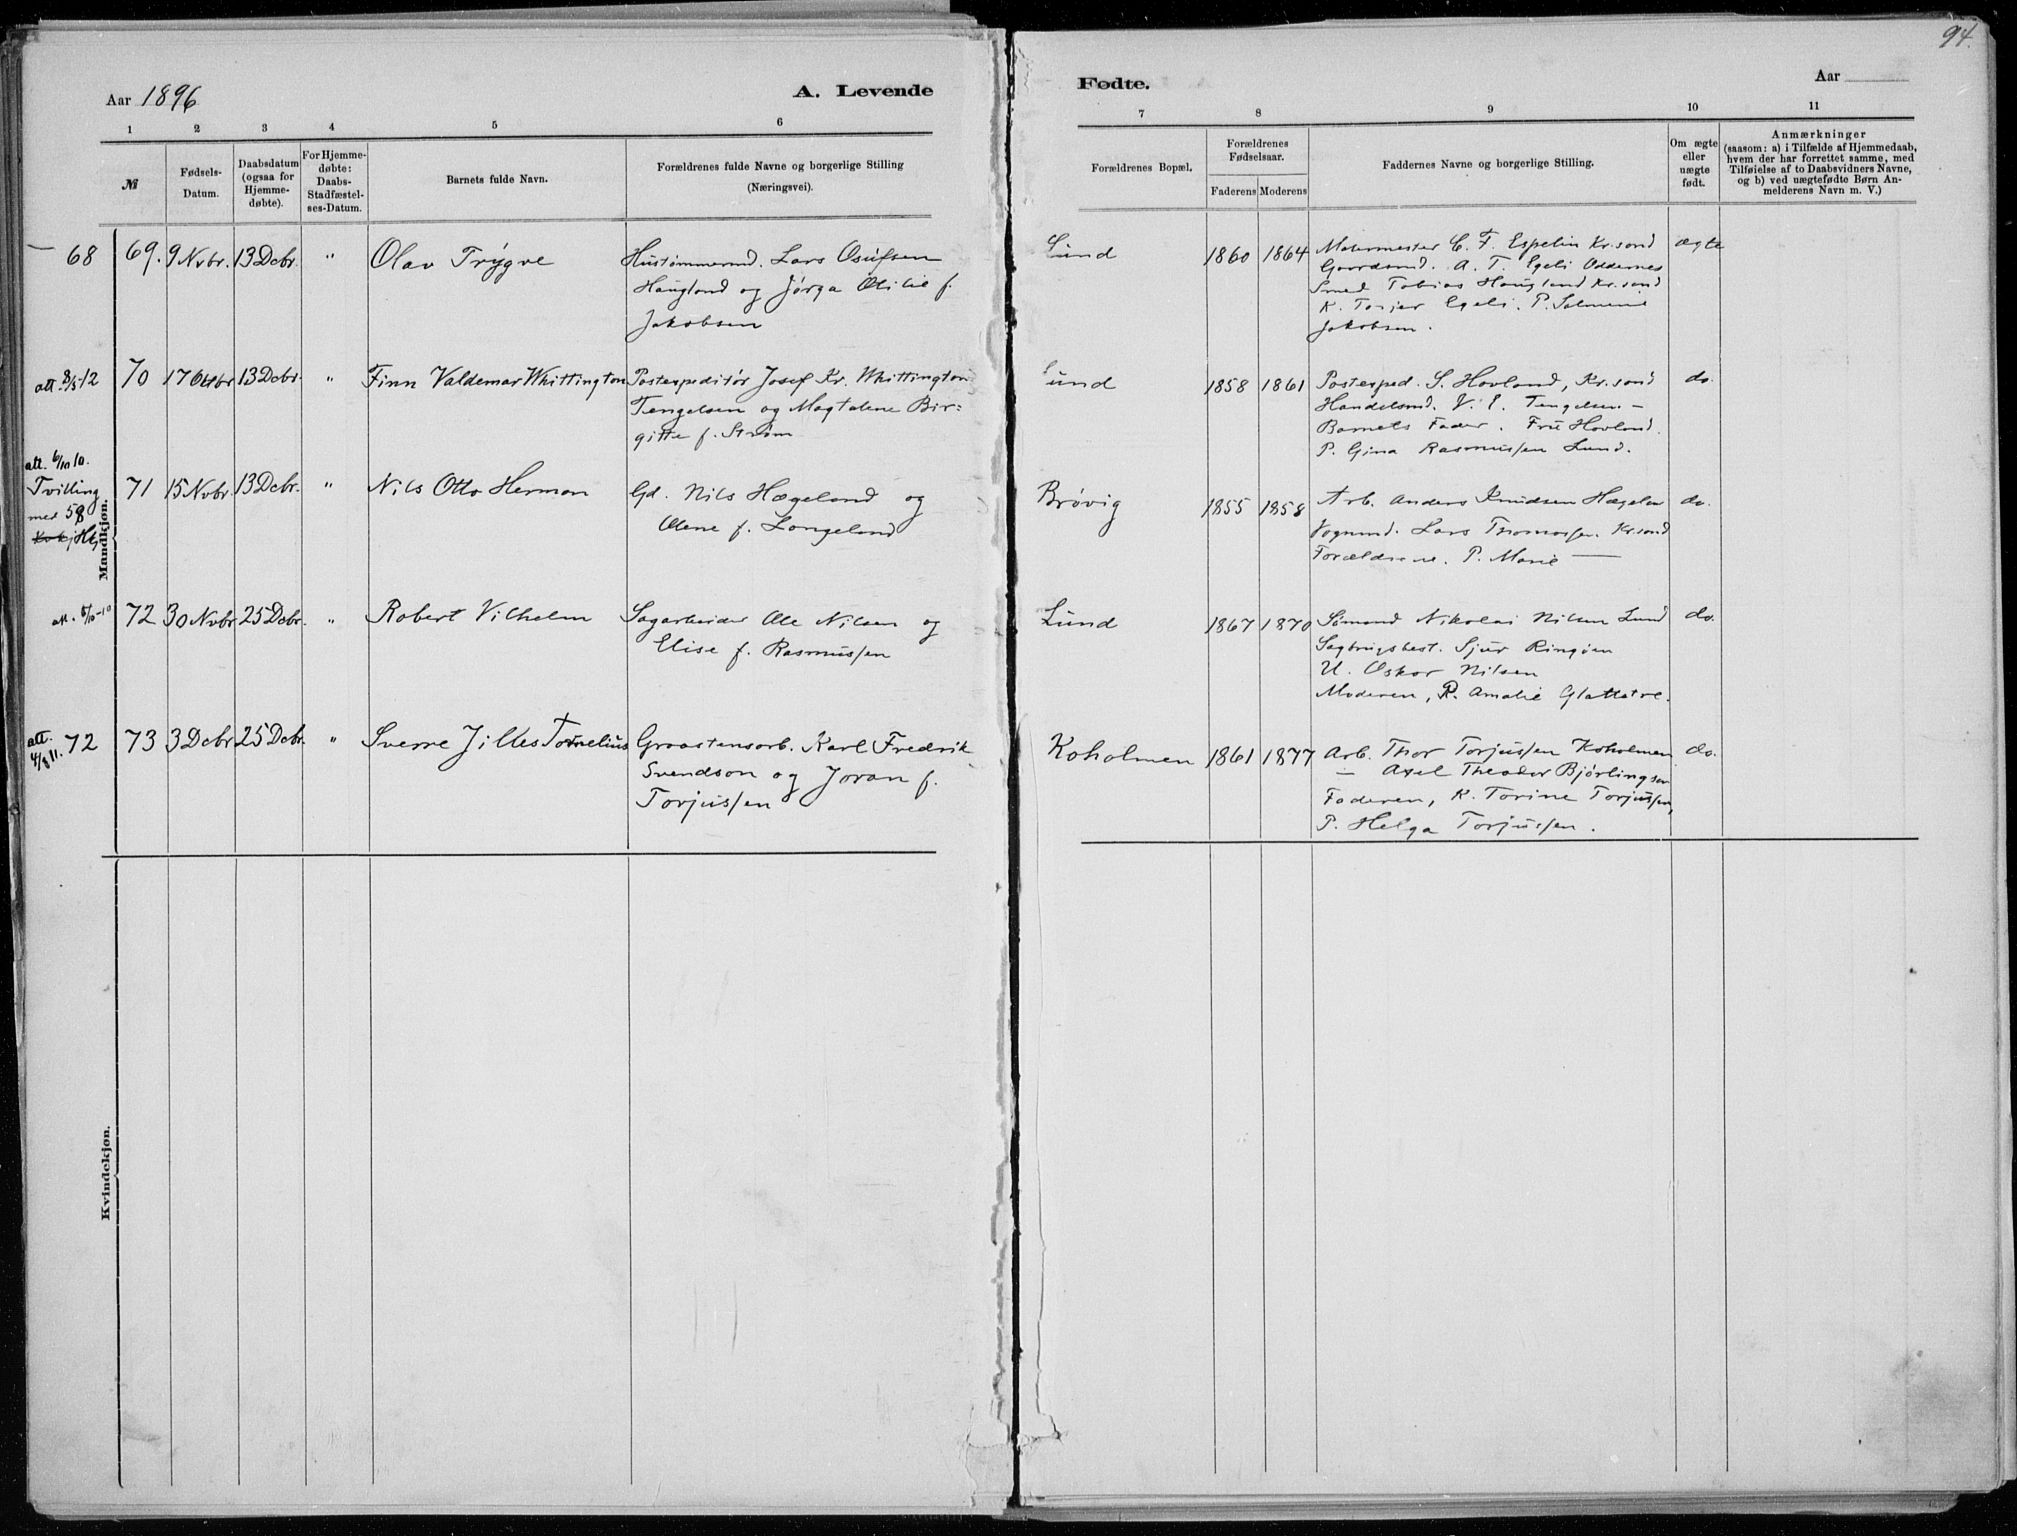 94.
Aar 1896
A. Levende
Fødte.
Aar
1 2 3 4 5 6
7 8 9 10 11
№
Fødsels-
Datum.
Daabsdatum
(ogsaa for
Hjemme-
døbte).
For Hjemme-
døbte:
Daabs-
Stadfæstel-
ses-Datum.
Barnets fulde Navn.
Forældrenes fulde Navne og borgerlige Stilling
(Næringsvei).
Forældrenes Bopæl.
Forældrenes
Fødselsaar.
Faderens Moderens
Faddernes Navne og borgerlige Stilling.
Om ægte
eller
uægte
født.
Anmærkninger
(saasom: a) i Tilfælde af Hjemmedaab,
hvem der har forrettet samme, med
Tilføielse af to Daabsvidners Navne,
og b) ved uægtefødte Børn An-
melderens Navn m. V.)
Mandkjøn.
— 68
69. 9 Nvbr. 13 Debr. " Olav Trygve
Hustømmermd. Lars Osufsen
Haugland og Jørga Otilie f.
Jakobsen
Lund 1860 1864
Malermester C. F. Espelin Kr.sand
Gaardsmd. A. T. Egeli Oddernes
Smed Tobias Haugland Kr.sand
K. Torjer Egeli. P. Salmine
Jakobsen.
ægte
att. 8/5-12
70 17 Oktbr 13 Debr. " Finn Valdemar Whittington
Postexpeditør Josef Kr. Whittington
Tengelsen og Magtalene Bir=
gitte f. Strøm
Lund 1858 1861
Postexped. S. Hovland, Kr.sand
Handelsmd. V. E. Tengelsen —
Barnets Fader. Fru Hovland.
P. Gina Rasmussen Lund.
do.
att. 6/10 10.
Tvilling
med 58
71 15 Nvbr. 13 Debr. " Nils Otto Herman
Gd. Nils Hægeland og
Olene f. Langeland
Brøvig 1855 1858
Arb. Anders Knudsen Hægelan
Vognmd. Lars Thomassen Kr.sand
Forældrene. P. Marie —
do.
att. 5/10-10
72 30 Nvbr 25 Debr. " Robert Vilhelm
Sagarbeider Ole Nilsen og
Elise f. Rasmussen
Lund 1867 1870
Sømand Nikolai Nilsen Lund
Sagbrugsbest. Sjur Ringøen
U. Oskar Nilsen
Moderen, P. Amalie Glattetre.
do.
att. 72
4/8 11.
73 3 Debr 25 Debr. " Sverre Jilles Tornelius
Graastensarb. Karl Fredrik
Svendson og Joran f.
Torjussen
Koholmen 1861 1877
Arb. Thor Torjussen Koholmen
— Axel Theodor Bjørlingsen
Faderen, K. Torine Torjussen,
P. Helga Torjussen.
do.
Kvindekjøn.